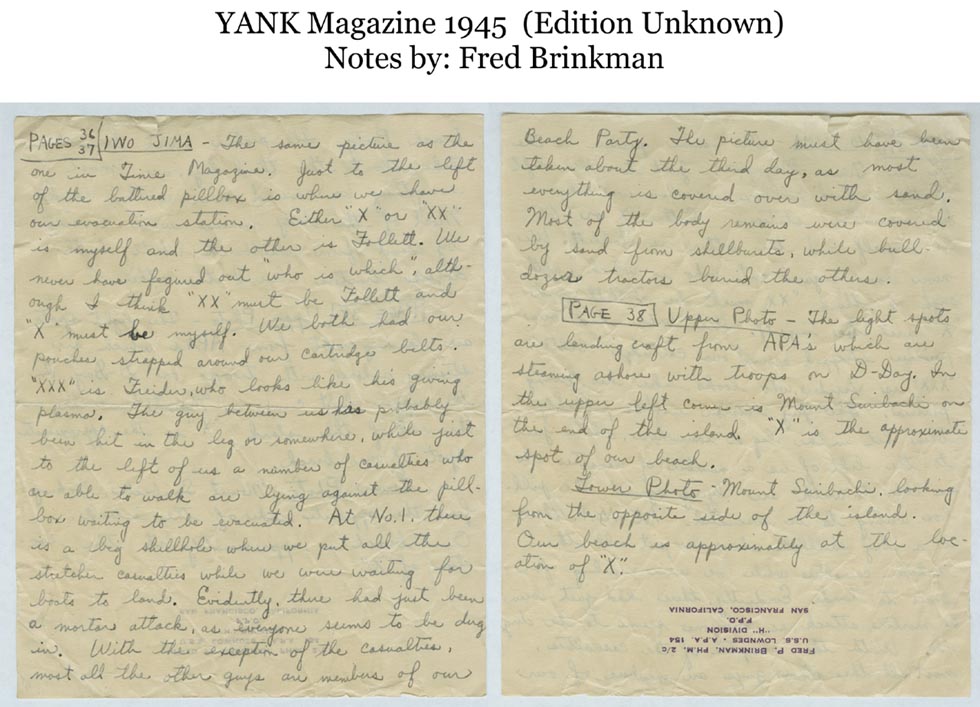 YANK Magazine 1945 (Edition Unknown)
Notes by: Fred Brinkman
PAGES 36 37 / IWO JIMA - The same picture as the
one in Time Magazine. Just to the left
of the battered pillbox is where we have
our evacuation station. Either "X" or "XX"
is myself and the other is Follett. We
never have fegured out "who is which", alth-
ough I think "XX" must be Follett and
"X" must be myself. We both had our
pouches strapped around our cartridge belts.
"XXX" is Freider, who looks like his giving
plasma. The guy between us has probably
been hit in the leg or somewhere, while just
to the left of us a number of casualties who
are able to walk are lying against the pill-
box waiting to be evacuated. At No.1, there
is a big shellhole where we put all the
stretcher casualties while we were waiting for
boats to land. Evidently, there had just been
a mortar attack, as everyone seems to be dug
in. With the exception of the casualties,
most all the other guys are members of our
Beach Party. The picture must have been
taken about the third day, as most
everything is covered over with sand.
Most of the body remains were covered
by sand from shellbursts, while bull-
dozers tractors buried the others.
PAGE 38 Upper Photo - The light spots
are landing craft from APA's which are
steaming ashore with troops on D-Day. In
the upper left corner is Mount Suribachi on
the end of the island. "X" is the approximate
spot of our beach.
Lower Photo - Mount Suribachi, looking
from the opposite side of the island.
Our beach is approximately at the loc-
ation of "X".
FRED P. BRINKMAN, PH.M. 2/C
U.S.S. LOWNDES - A.P.A. 154
"H" DIVISION
F.P.O.
SAN FRANCISCO, CALIFORNIA